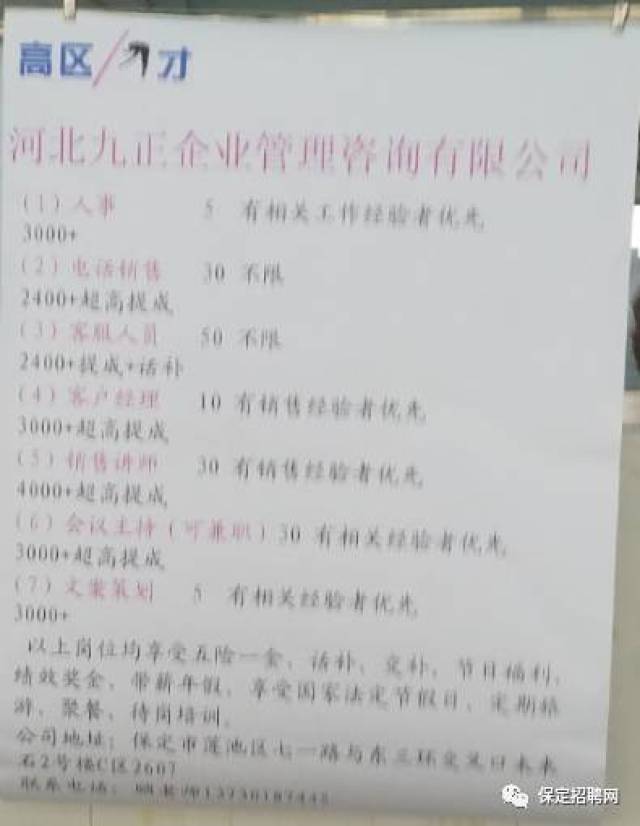 高区人才
河北九正企业管理咨询有限公司
(1)人事 5 有相关工作经验者优先
3000+
(2)电话销售 30 不限
2400+超高提成
(3)客服人员 50 不限
2400+提成+话补
(4)客户经理 10 有销售经验者优先
3000+超高提成
(5)销售讲师 30 有销售经验者优先
4000+超高提成
(6)会议主持(可兼职)30 有相关经验者优先
3000+超高提成
(7)文案策划 5 有相关经验者优先
3000+
以上岗位均享受五险一金、话补、交补、节日福利、
绩效奖金、带薪年假、享受国家法定节假日、定期旅
游、聚餐、待岗培训。
公司地址:保定市莲池区七一路与东三环交叉口未来
石2号楼C区2607
联系电话: 老师
保定招聘网